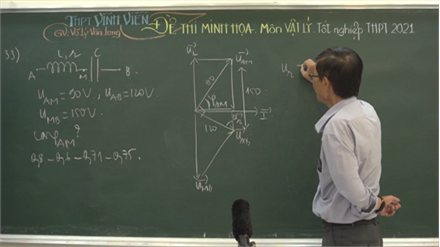 THPT VĨNH VIỄN
GV: Võ Lý Văn Long
ĐỀ THI MINH HỌA. Môn VẬT LÝ. Tốt nghiệp THPT 2021
33)
L, r
C
A
M
B
U_AM = 90V, U_AB = 120V
U_MB = 150V
cosφ_AM ?
0,8 - 0,6 - 0,71 - 0,75.
U_L
U_AM
90
φ_AM
150
I
120
U_r
U_AB
U_MB
U_r